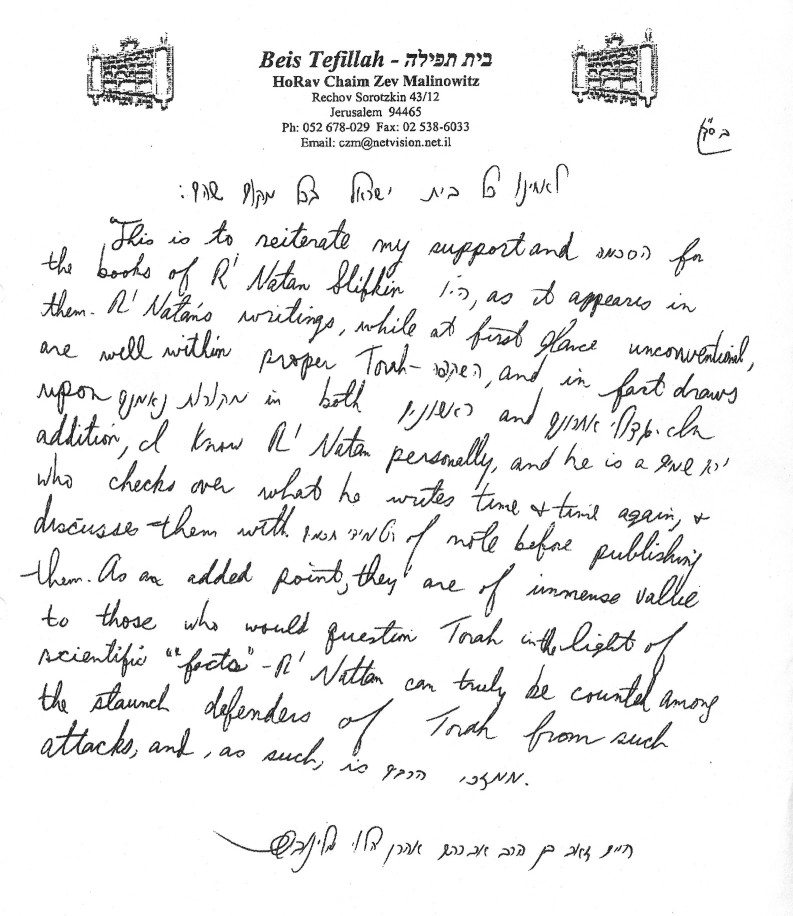 Beis Tefillah - בית תפילה
HoRav Chaim Zev Malinowitz
Rechov Sorotzkin 43/12
Jerusalem 94465
Ph: 052 678-029 Fax: 02 538-6033
Email: czm@netvision.net.il
בס"ד
כל בית ישראל בכל מקום שהם:
This is to reiterate my support and הסכמה for
the books of R' Natan Slifkin הי"ו, as it appears in
them. R' Natan's writings, while at first glance unconventional,
are well within proper Torah-השקפה, and in fact draws
upon מקורות נאמנים in both ראשונים and אחרונים
addition, I know R' Natan personally, and he is a ירא שמים
who checks over what he writes time & time again, &
discusses them with תלמידי חכמים of note before publishing
them. As an added point, they are of immense value
to those who would question Torah in the light of
scientific "facts" - R' Nattan can truly be counted among
the staunch defenders of Torah from such
attacks, and, as such, is ממזכי הרבים.
חיים זאב בן הרב אברהם אהרן הלוי מלינוביץ